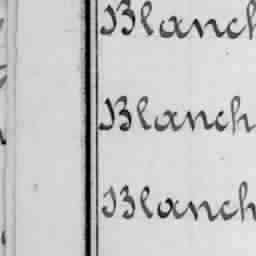 Blanch
Blanch
Blanch